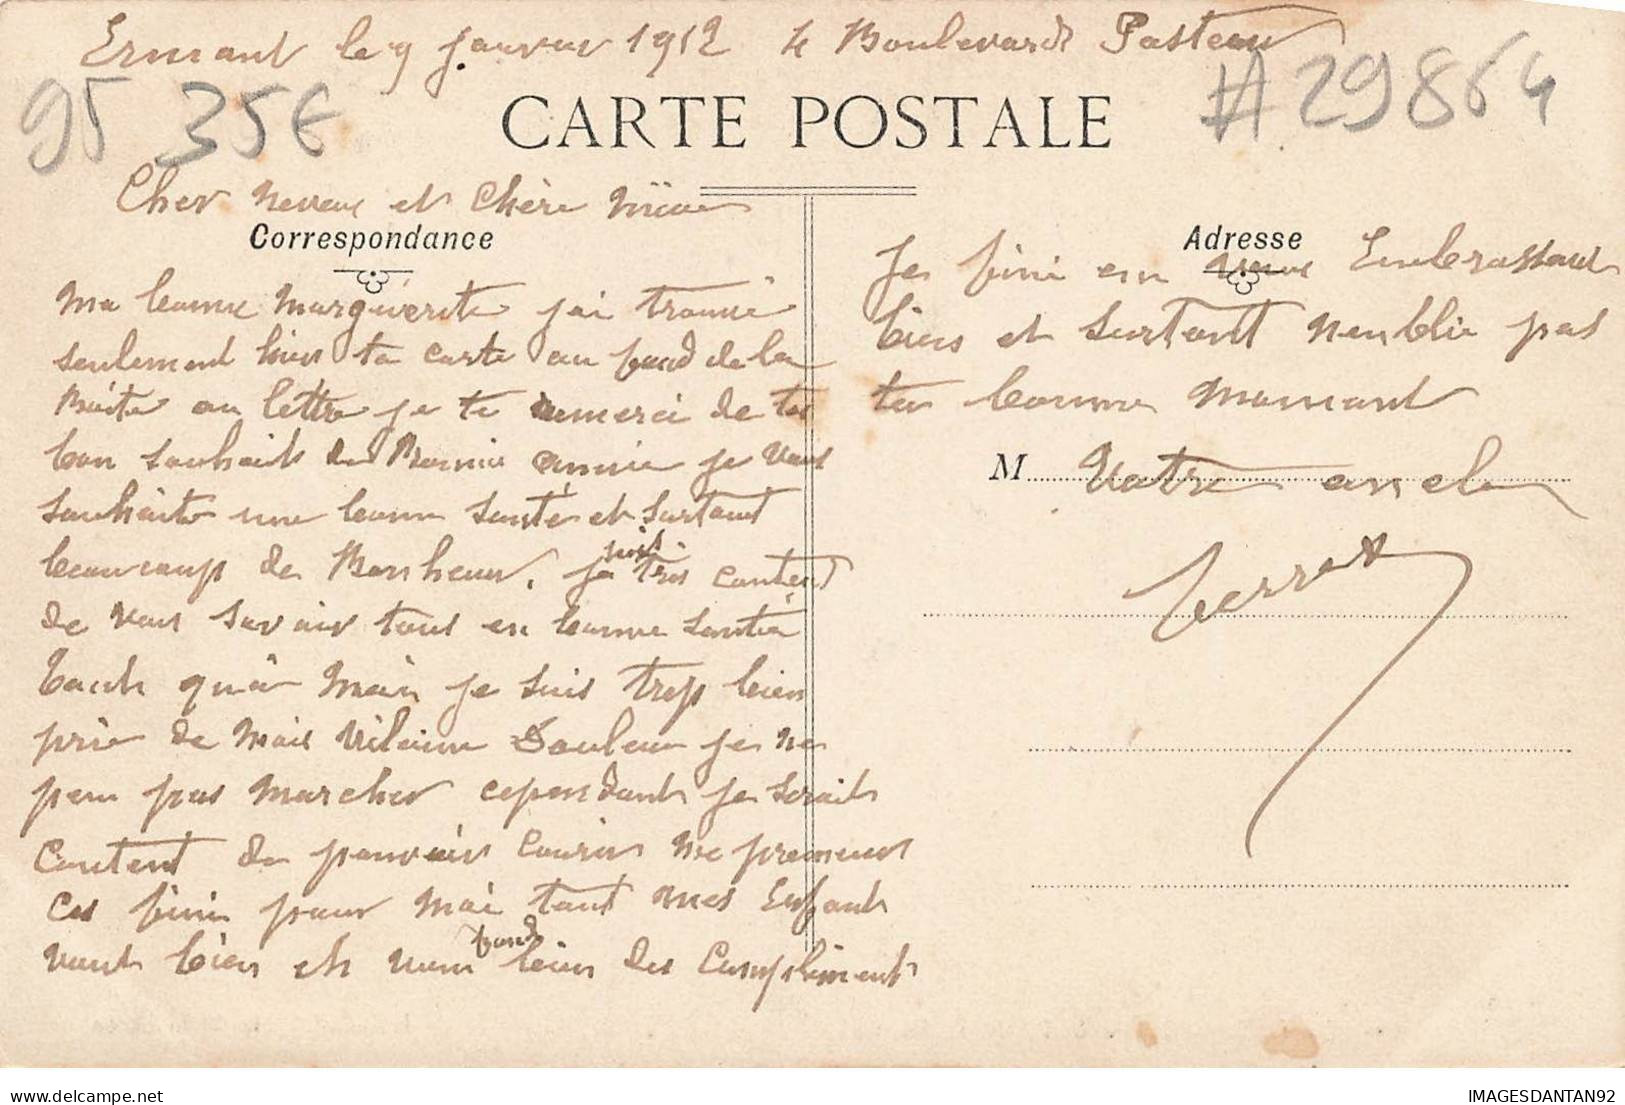 Ermant le 9 janvier 1912 4 Boulevard Pasteur
95 35€
#29864
CARTE POSTALE
Cher neveux et Chère Nièce
Correspondance
Ma bonne Marguerite j'ai trouvé
seulement hier ta carte au fond de la
Boite au lettre je te remerci de tes
bon souhait de Bonnie année je vous
souhaite une bonne santé et surtout
beaucoup de Bonheur. je suis très content
de vous savoir tous en bonne santé
tandi qu'à Moin je suis trop bien
pris de mais vilaine Douleur je ne
peu pas marcher cependant je serait
content de pouvoir courir me promener
ces fini pour moi tout mes Enfant
vont bien et vous fond bien des Compliment
Adresse
Je fini en vous Embrassant
bien et surtout n'oublie pas
ta bonne Mamant
M Votre oncle
Terrat
IMAGESDANTAN92